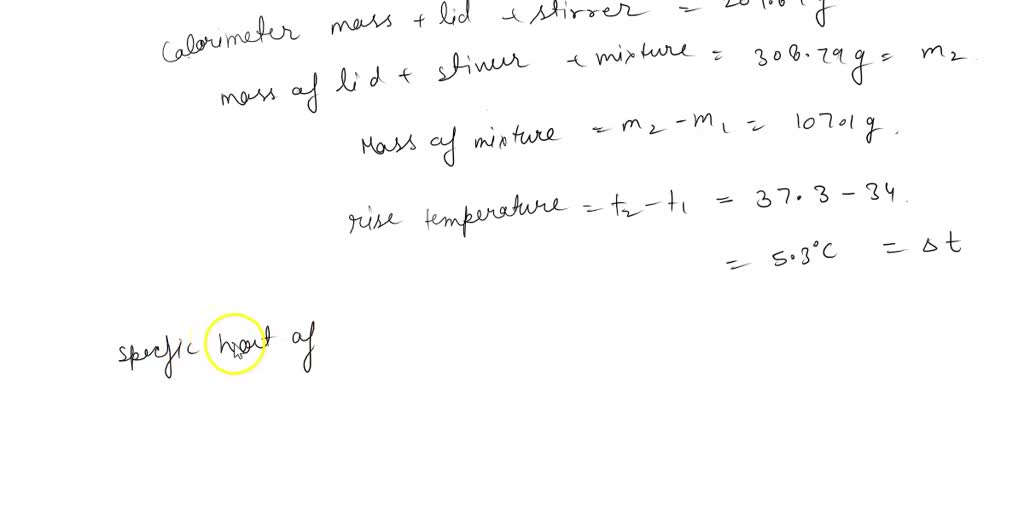 Calorimeter mass + lid + stirrer =
mass of lid + stirrer + mixture = 308.79 g = m2
Mass of mixture = m2 - m1 = 107.01 g.
rise temperature = t2 - t1 = 37.3 - 34.
= 5.3°C = Δt
specfic heat of